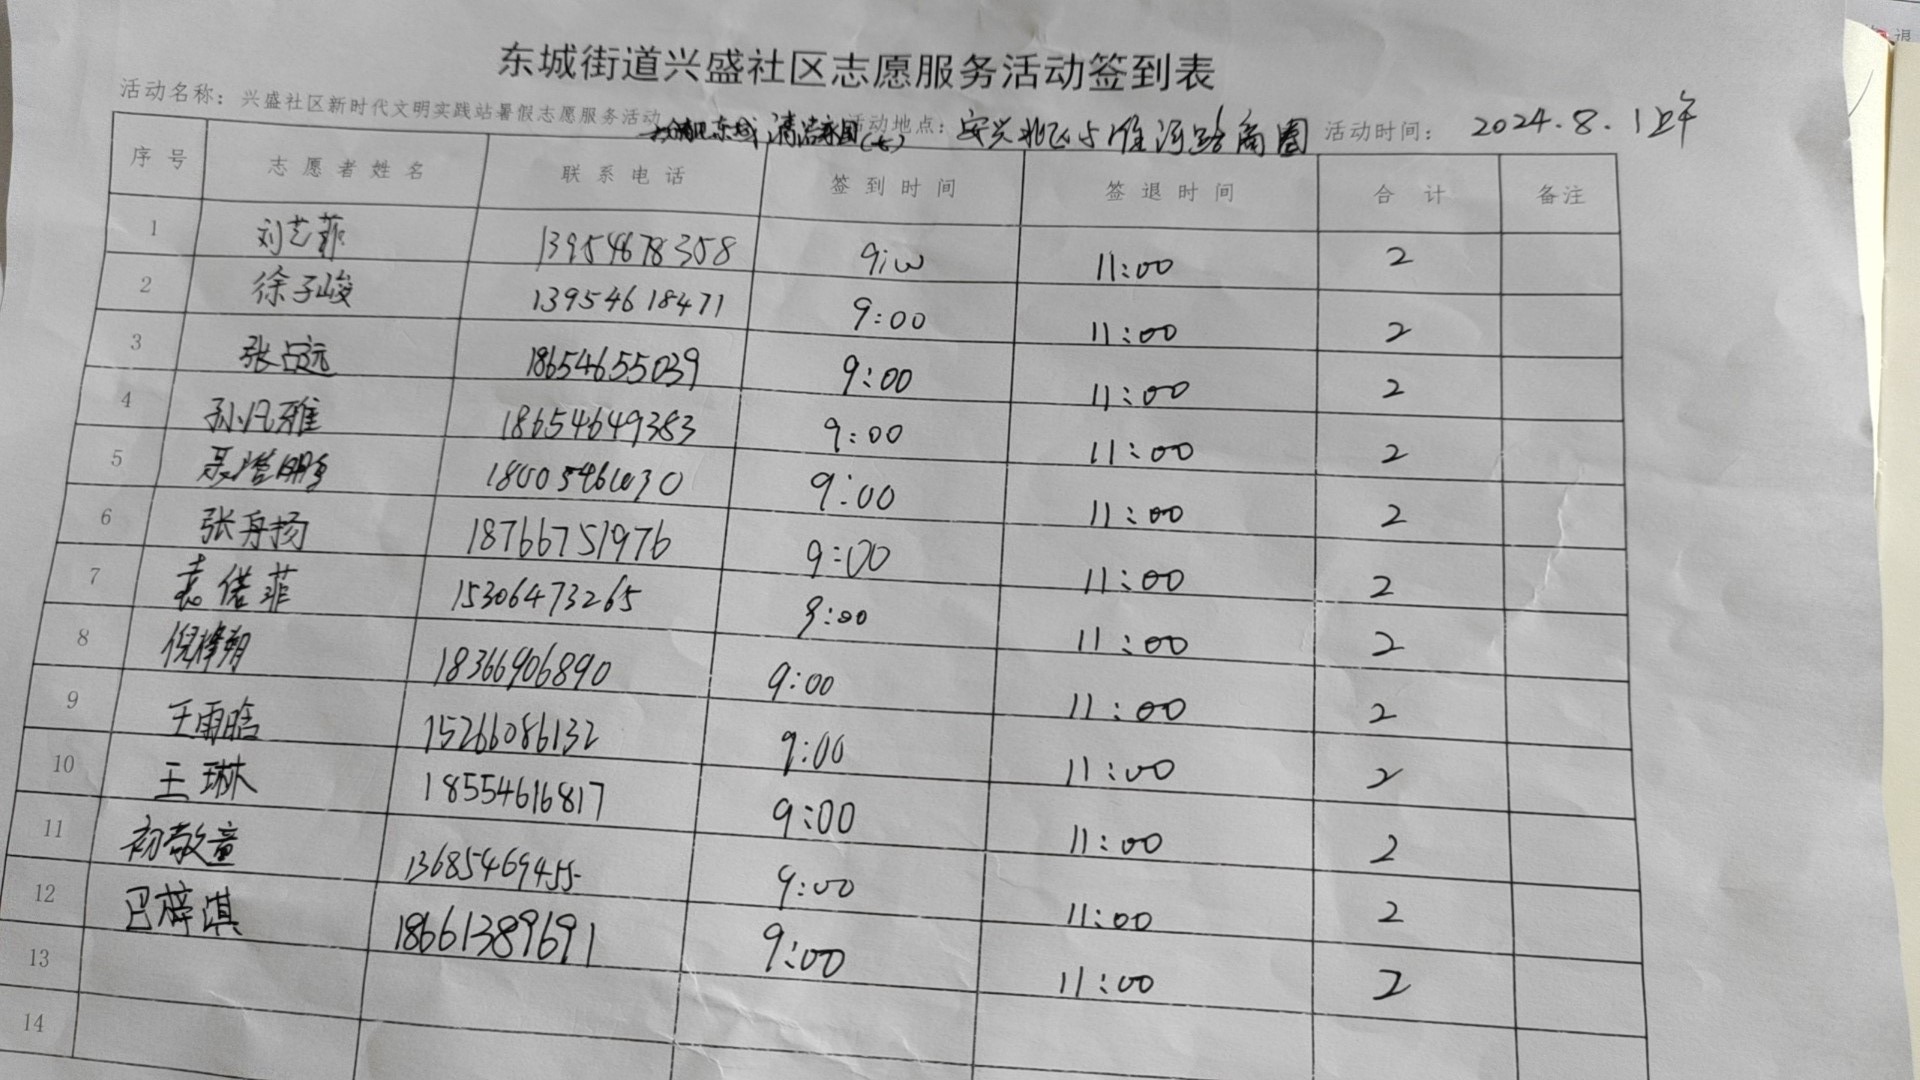 东城街道兴盛社区志愿服务活动签到表
活动名称：兴盛社区新时代文明实践站暑假志愿服务活动 东城 清洁家园(七) 活动地点： 安兴北飞与淮河路商圈 活动时间： 2024.8.1上午
序号 志愿者姓名 联系电话 签到时间 签退时间 合计 备注
1 刘艺菲 13954678358 9:00 11:00 2
2 徐子峻 13954618471 9:00 11:00 2
3 张占远 18654655039 9:00 11:00 2
4 孙凡雅 18654649383 9:00 11:00 2
5 9:00 11:00 2
6 张舟扬 18766751976 9:00 11:00 2
7 袁偌菲 15306473265 9:00 11:00 2
8 倪烽朔 18366906890 9:00 11:00 2
9 王雨晗 15266086132 9:00 11:00 2
10 王琳 18554616817 9:00 11:00 2
11 初敬童 13685469455 9:00 11:00 2
12 巴梓淇 18661389691 9:00 11:00 2
13
14
退